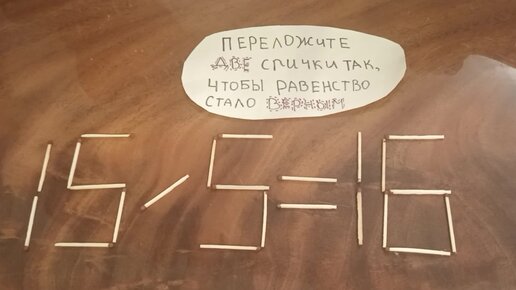 ПЕРЕЛОЖИТЕ
ДВЕ СПИЧКИ ТАК,
ЧТОБЫ РАВЕНСТВО
СТАЛО ВЕРНЫМ
15/5=16